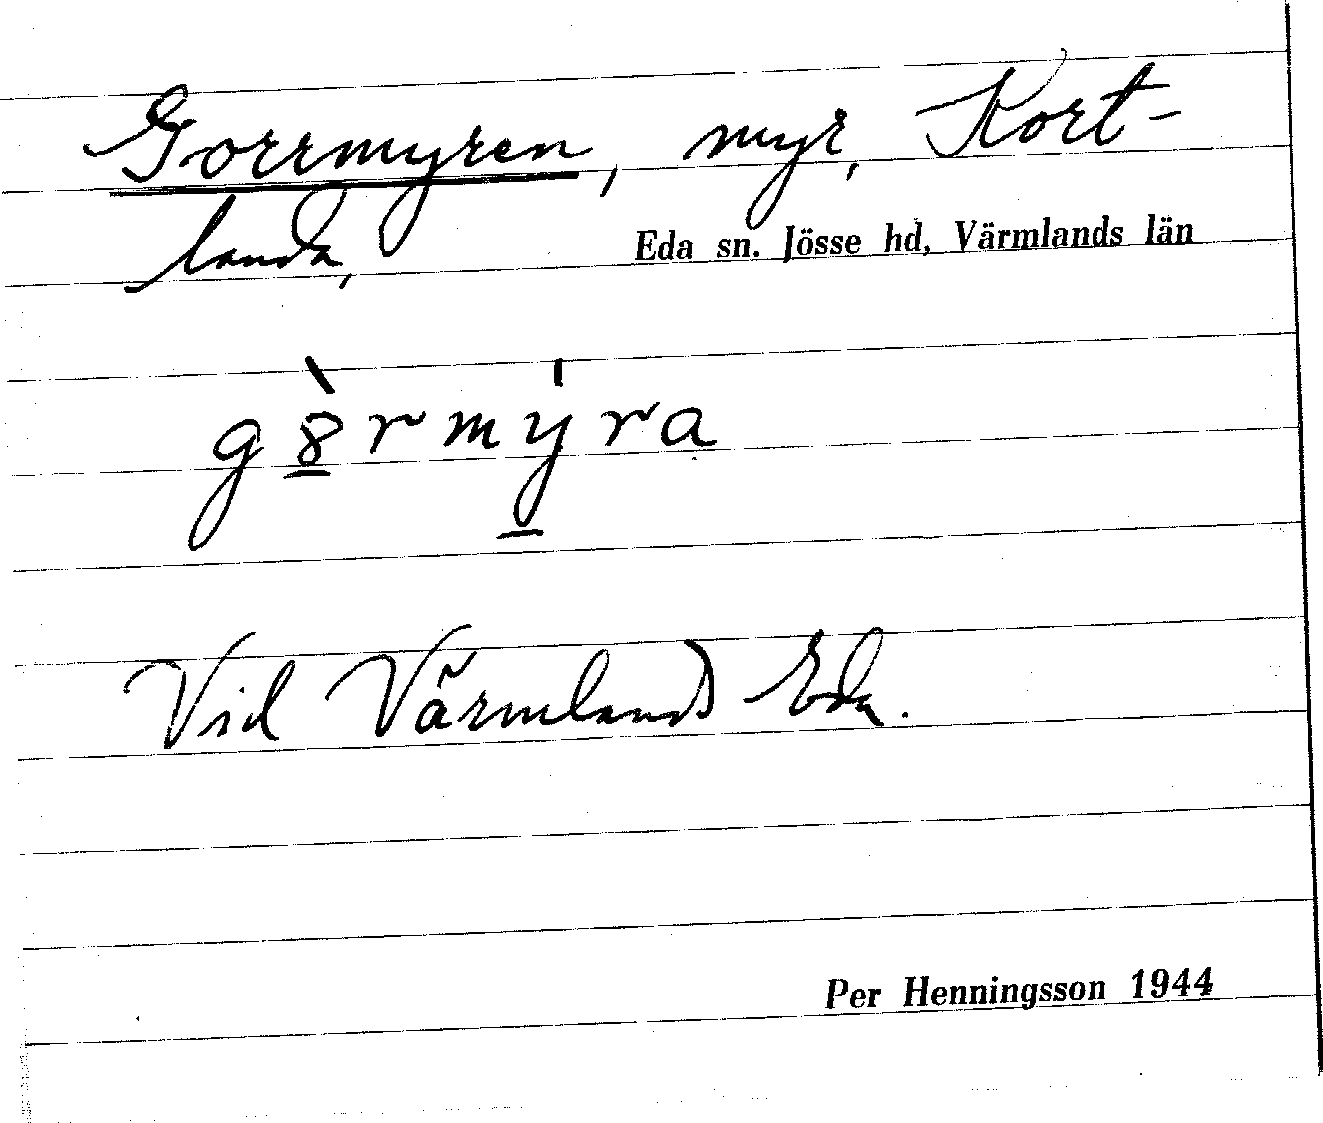 Gorrmyren, myr, Kort-
landa, Eda sn. Jösse hd, Värmlands län
g8̱̀rmý̱ra
Vid Värmlands Eda.
Per Henningsson 1944